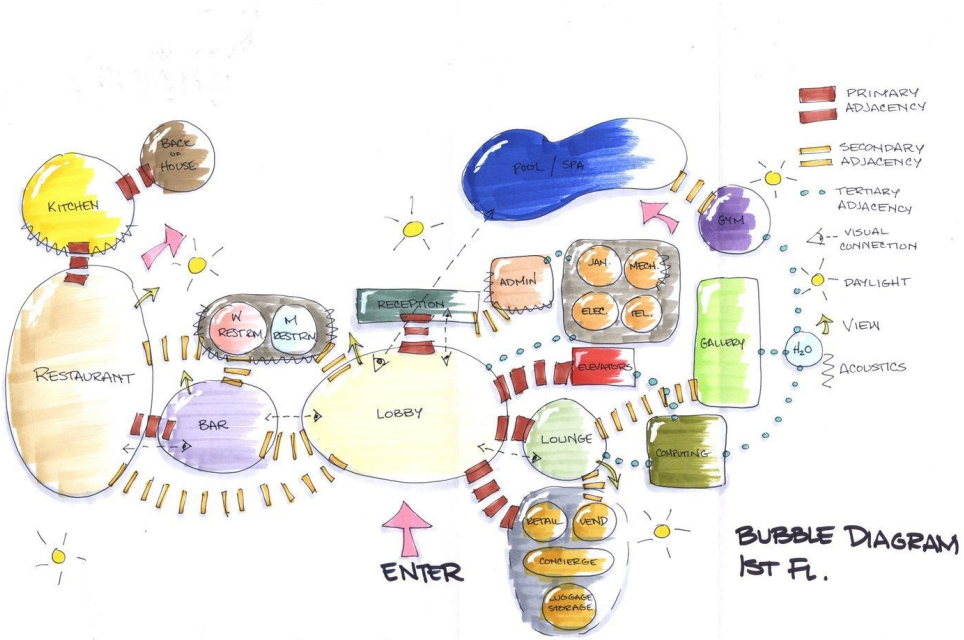 PRIMARY
ADJACENCY
SECONDARY
ADJACENCY
TERTIARY
ADJACENCY
VISUAL
CONNECTION
DAYLIGHT
VIEW
ACOUSTICS
BACK
OF
HOUSE
KITCHEN
POOL / SPA
GYM
RESTAURANT
W
RESTRM
M
RESTRM
RECEPTION
ADMIN
JAN.
MECH.
ELEC.
TEL.
GALLERY
H2O
ELEVATORS
BAR
LOBBY
LOUNGE
COMPUTING
RETAIL
VEND
CONCIERGE
LUGGAGE
STORAGE
ENTER
BUBBLE DIAGRAM
1ST FL.